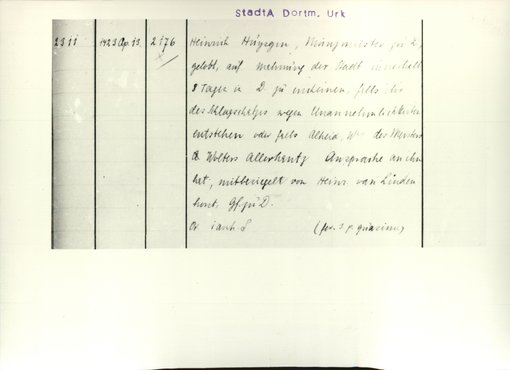 StadtA Dortm. Urk
2311 1423 Ap. 13. 2176 Heinrich , Münzmeister zu D,
gelobt, auf Mahnung der Stadt innerhalb
8 Tagen in D. zu erscheinen, falls ihr
des Schlagschatzes wegen Unannehmlichkeiten
entstehen oder falls Alheid, We des
Wolters Ansprache an ihn
hat, mitbesiegelt von Heinr. van Linden
horst. Gf. zu D.
Or